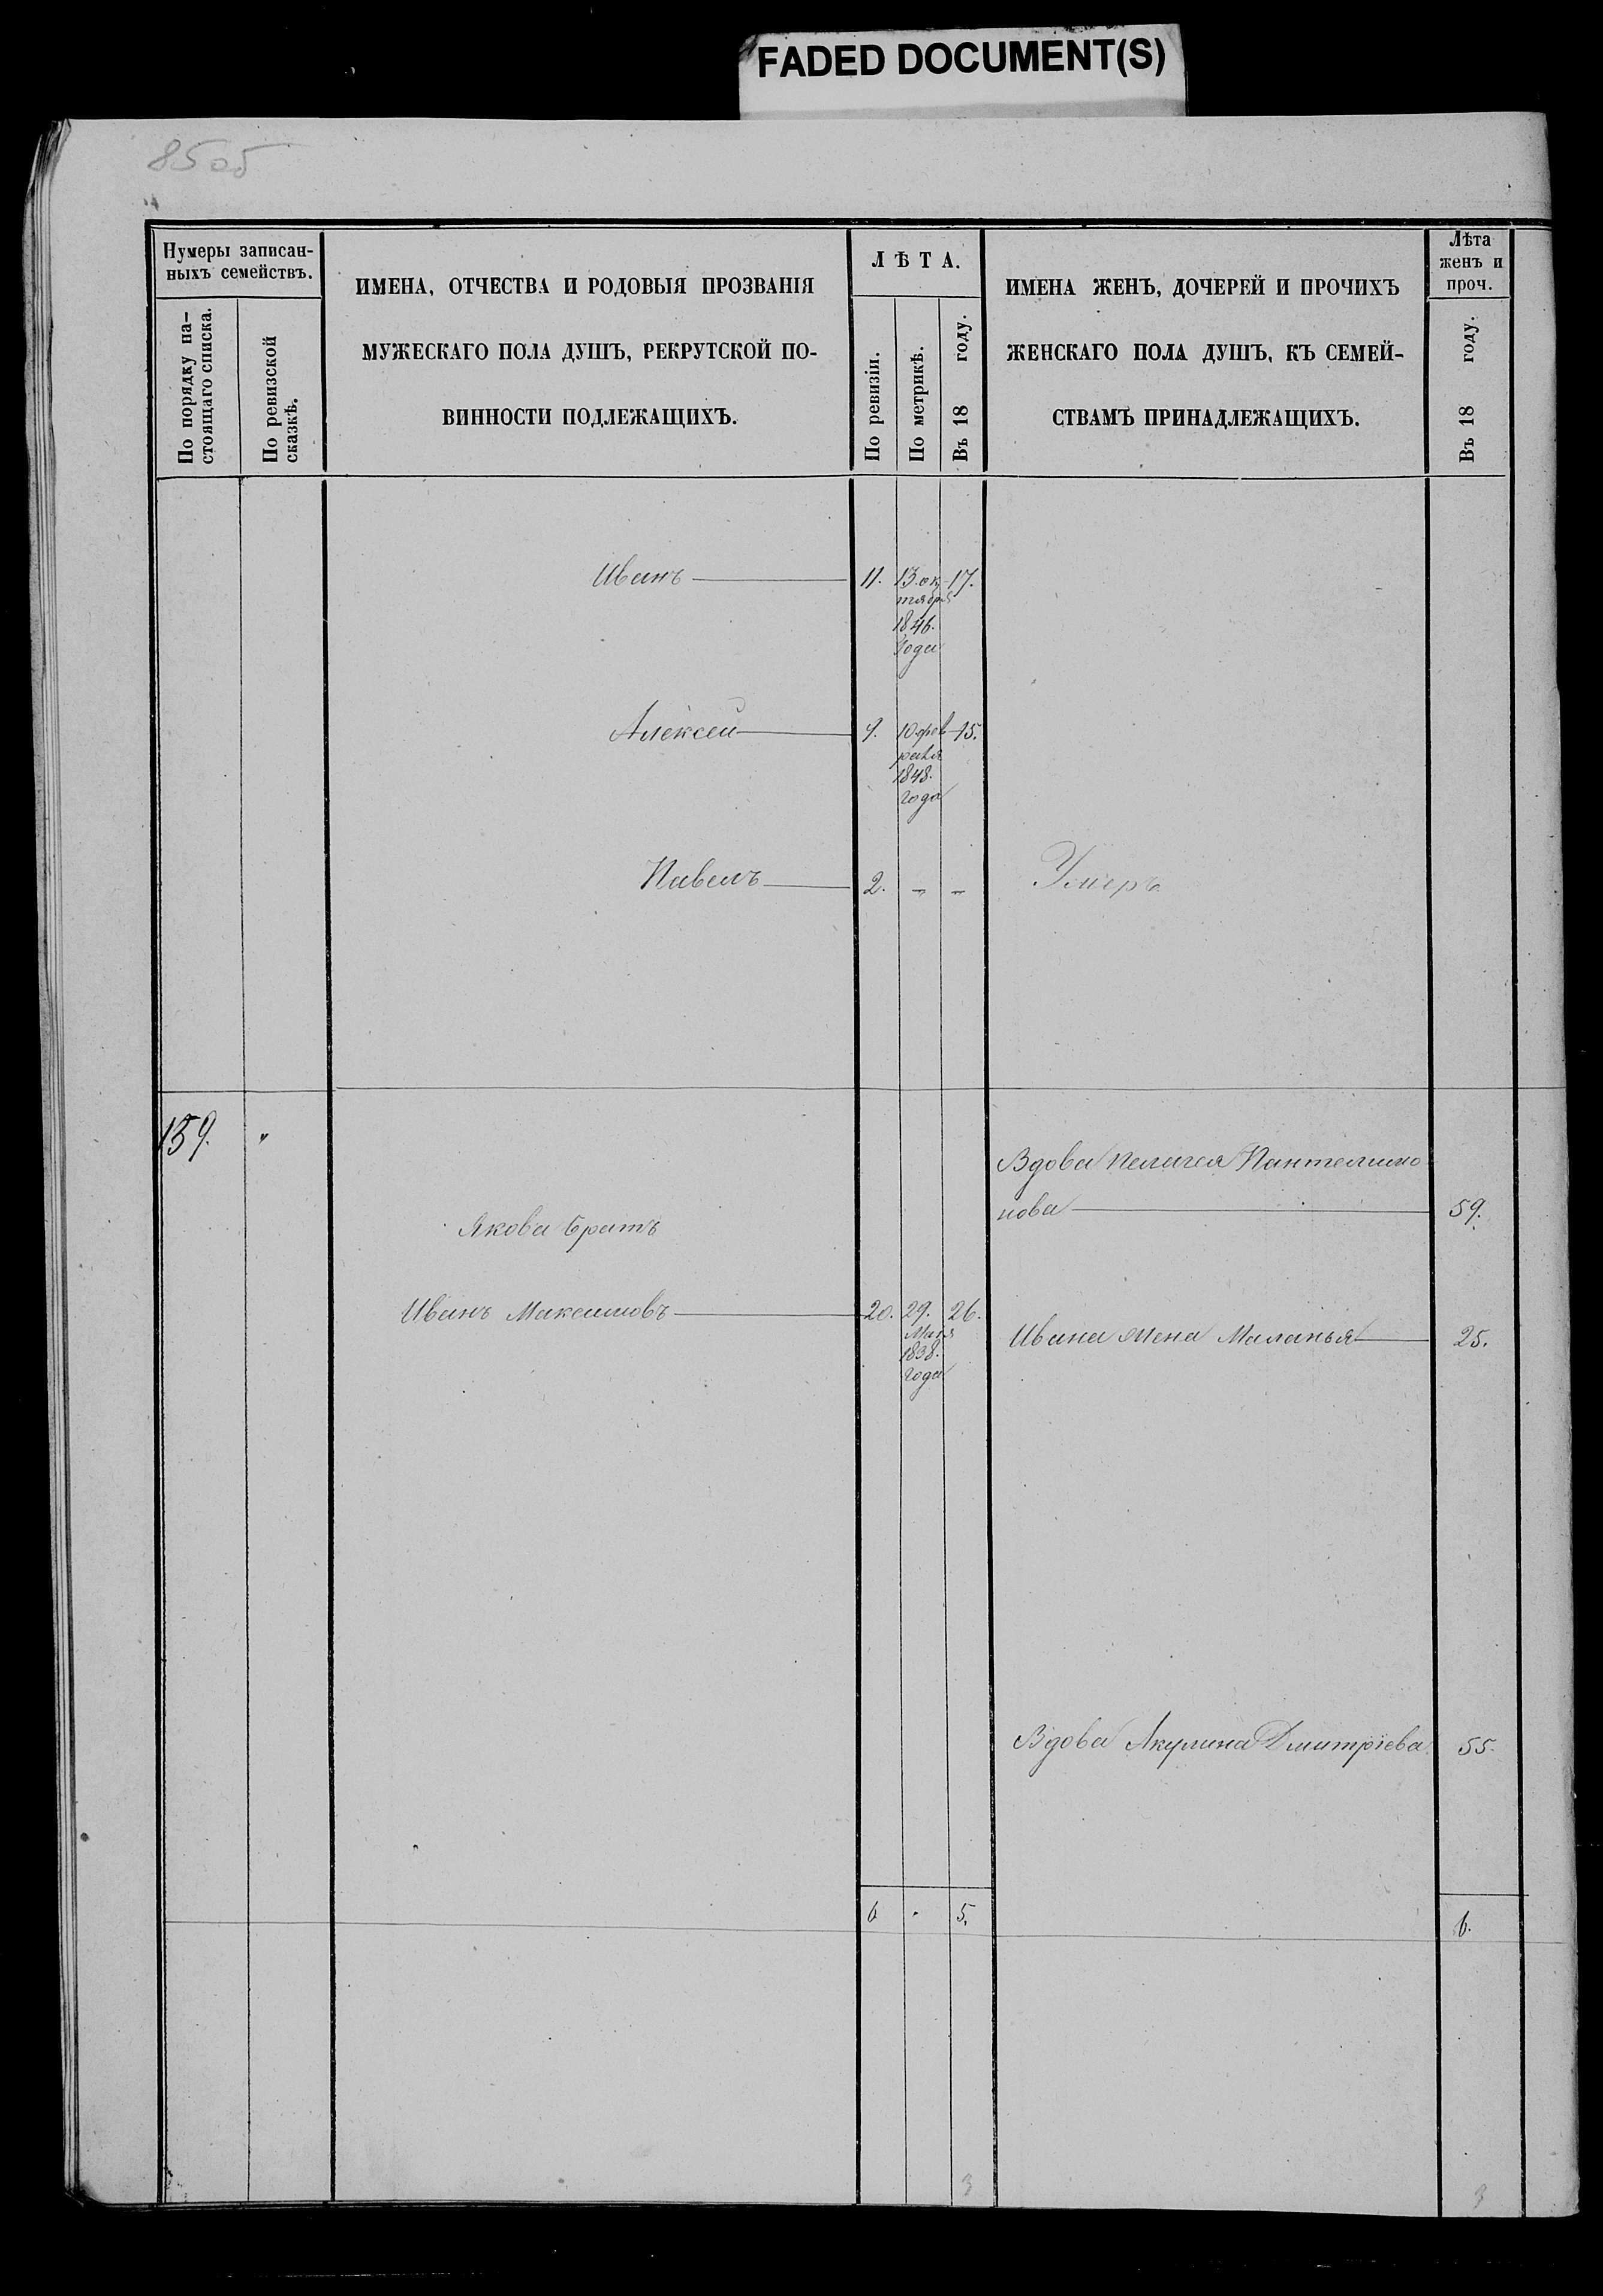 FADED DOCUMENT(S)
85об
Нумеры записан-
ныхъ семействъ.
По порядку на-
стоящаго списка.
По ревизской
сказкѣ.
ИМЕНА, ОТЧЕСТВА И РОДОВЫЯ ПРОЗВАНІЯ
МУЖЕСКАГО ПОЛА ДУШЪ, РЕКРУТСКОЙ ПО-
ВИННОСТИ ПОДЛЕЖАЩИХЪ.
ЛѢТА.
По ревизіи.
По метрикѣ.
Въ 18 году.
ИМЕНА ЖЕНЪ, ДОЧЕРЕЙ И ПРОЧИХЪ
ЖЕНСКАГО ПОЛА ДУШЪ, КЪ СЕМЕЙ-
СТВАМЪ ПРИНАДЛЕЖАЩИХЪ.
Лѣта
женъ и
проч.
Въ 18 году.
Иванъ 11. 13. ок- 17.
тября
1846.
Года
Алексей 9. 10 фев 15.
раля
1848.
Года
Павелъ 2. - - Умеръ
159. "
Вдова Пелагея Пантелимо
нова 59.
Якова братъ
Иванъ Максимовъ 20. 29. 26.
Мая
1838.
Года
Ивана жена Маланья 25.
Вдова Акулина Дмитріева 55.
6 . 5. 6.
3 3